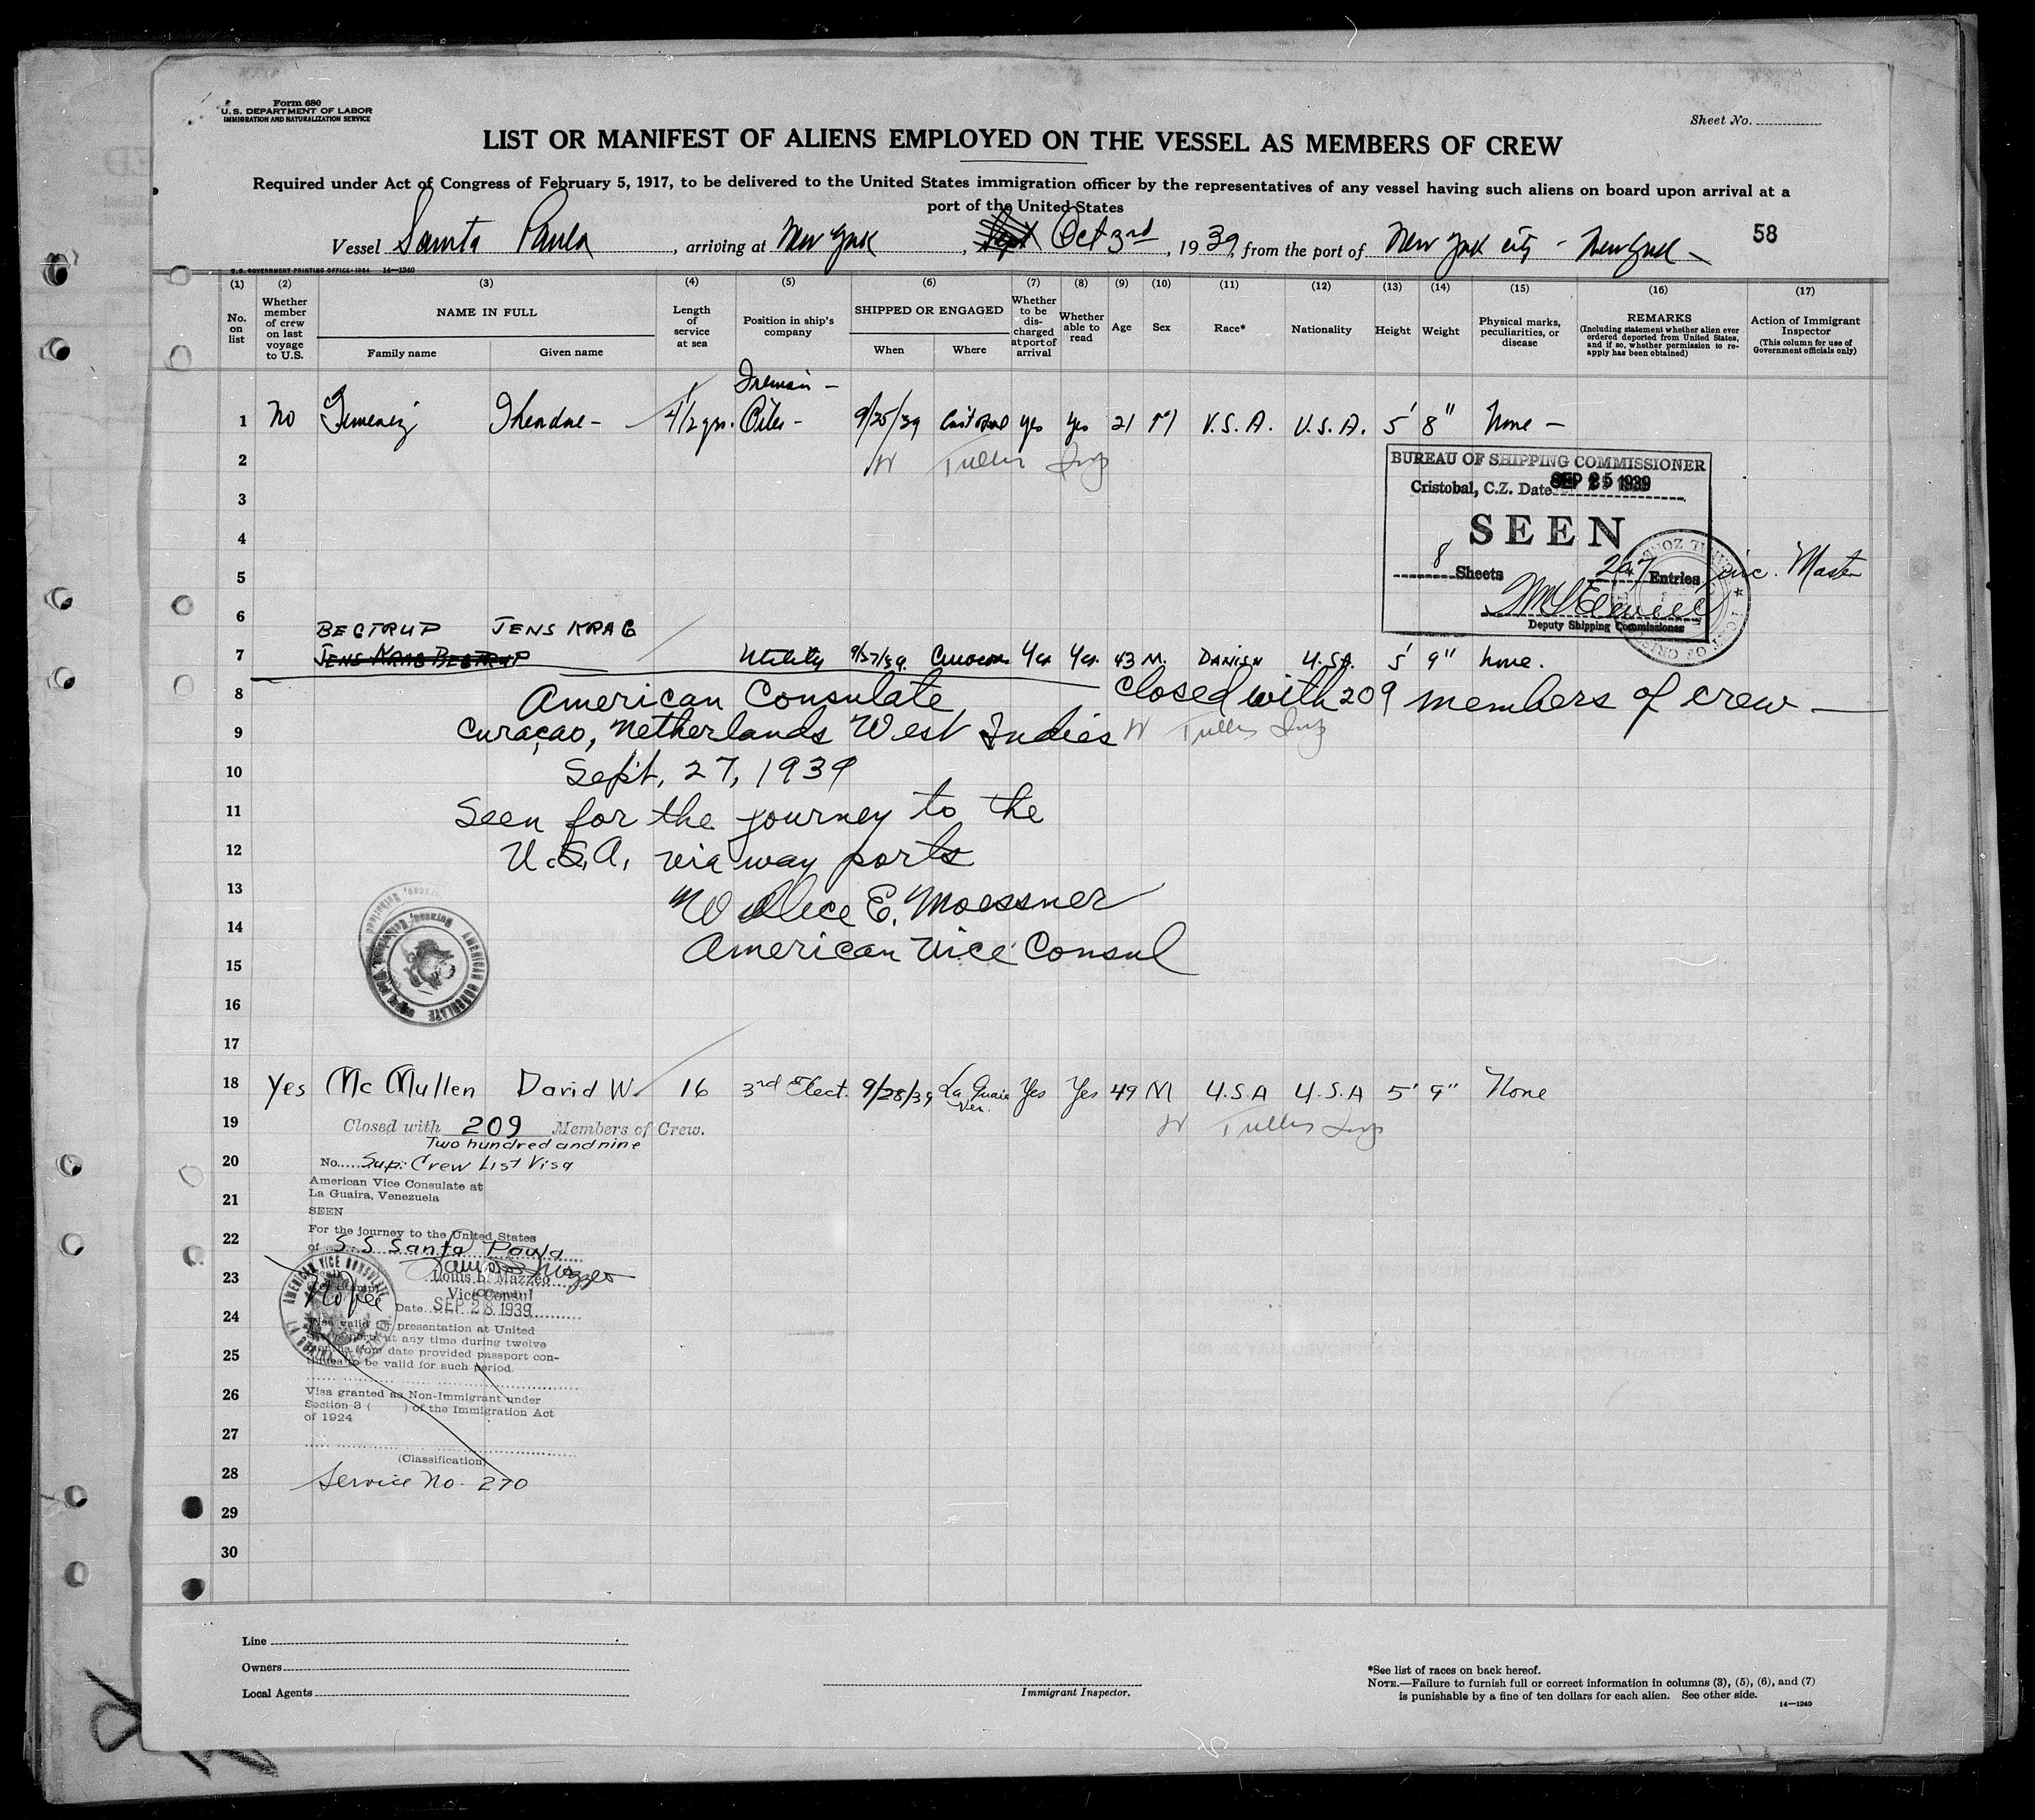 Form 680
U.S. DEPARTMENT OF LABOR
IMMIGRATION AND NATURALIZATION SERVICE
Sheet No.
LIST OR MANIFEST OF ALIENS EMPLOYED ON THE VESSEL AS MEMBERS OF CREW
Required under Act of Congress of February 5, 1917, to be delivered to the United States immigration officer by the representatives of any vessel having such aliens on board upon arrival at a
port of the United States
Vessel Santa Paula, arriving at New York, Sept Oct 3rd, 1939, from the port of New York city - New York -
58
U.S. GOVERNMENT PRINTING OFFICE: 1934 14—1240
(1) (2) (3) (4) (5) (6) (7) (8) (9) (10) (11) (12) (13) (14) (15) (16) (17)
No. on list
Whether member of crew on last voyage to U.S.
NAME IN FULL
Family name
Given name
Length of service at sea
Position in ship's company
SHIPPED OR ENGAGED
When
Where
Whether to be discharged at port of arrival
Whether able to read
Age
Sex
Race*
Nationality
Height
Weight
Physical marks, peculiarities, or disease
REMARKS
(Including statement whether alien ever ordered deported from United States, and if so, whether permission to reapply has been obtained)
Action of Immigrant Inspector
(This column for use of Government officials only)
1 No Jimenez Theodore - 4 1/2 yrs. 9/25/39 Cristobal yes Yes 21 M U.S.A. U.S.A. 5' 8" None -
2 W Tullis Insp
BUREAU OF SHIPPING COMMISSIONER
Cristobal, C.Z. Date SEP 25 1939
3
SEEN
4
8 Sheets 207 Entries inc. Master
5
Deputy Shipping Commissioner
6 BEGTRUP JENS KRAG
7 JENS KRAG BEGTRUP Utility 9/27/39. Curacao Yes Yes. 43 M. DANISH U.S.A. 5' 9" None.
8 American Consulate closed with 209 members of crew
9 Curaçao, Netherlands West Indies W Tullis Insp
10 Sept. 27, 1939
11 Seen for the journey to the
12 U.S.A. via way ports
13 Wallace E. Moessner
14 American Vice Consul
15
AMERICAN CONSULATE
16
17
18 Yes Mc Mullen David W. 16 3rd Elect. 9/28/39 La Guaira Ven. Yes Yes 49 M U.S.A U.S.A 5' 9" None
19 Closed with 209 Members of Crew. W Tullis Insp
Two hundred and nine
20 No. Sup. Crew List Visa
American Vice Consulate at
La Guaira, Venezuela
21
SEEN
For the journey to the United States
22 of S.S Santa Paula
23 Louis B. Mazzeo
Vice Consul
No fee
24 Date SEP 28 1939
AMERICAN VICE CONSULATE
Visa valid for presentation at United
States ports at any time during twelve
months from date provided passport con-
25 tinues to be valid for such period.
26 Visa granted as Non-Immigrant under
Section 3 ( ) of the Immigration Act
of 1924
27
(Classification)
28 Service No. 270
29
30
Line
Owners
Local Agents
Immigrant Inspector.
*See list of races on back hereof.
NOTE.—Failure to furnish full or correct information in columns (3), (5), (6), and (7)
is punishable by a fine of ten dollars for each alien. See other side.
14—1240